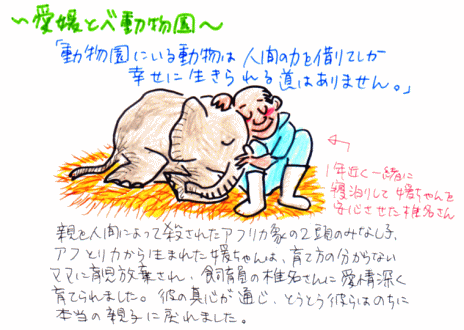 ～愛媛とべ動物園～
「動物園にいる動物は人間の力を借りてしか
幸せに生きられる道はありません。」
1年近く一緒に
寝泊りして媛ちゃんを
安心させた椎名さん
親を人間によって殺されたアフリカ象の2頭のみなし子、
アフとリカから生まれた媛ちゃんは、育て方の分からない
ママに育児放棄され、飼育員の椎名さんに愛情深く
育てられました。彼の真心が通じ、とうとう彼らはのちに
本当の親子に戻れました。